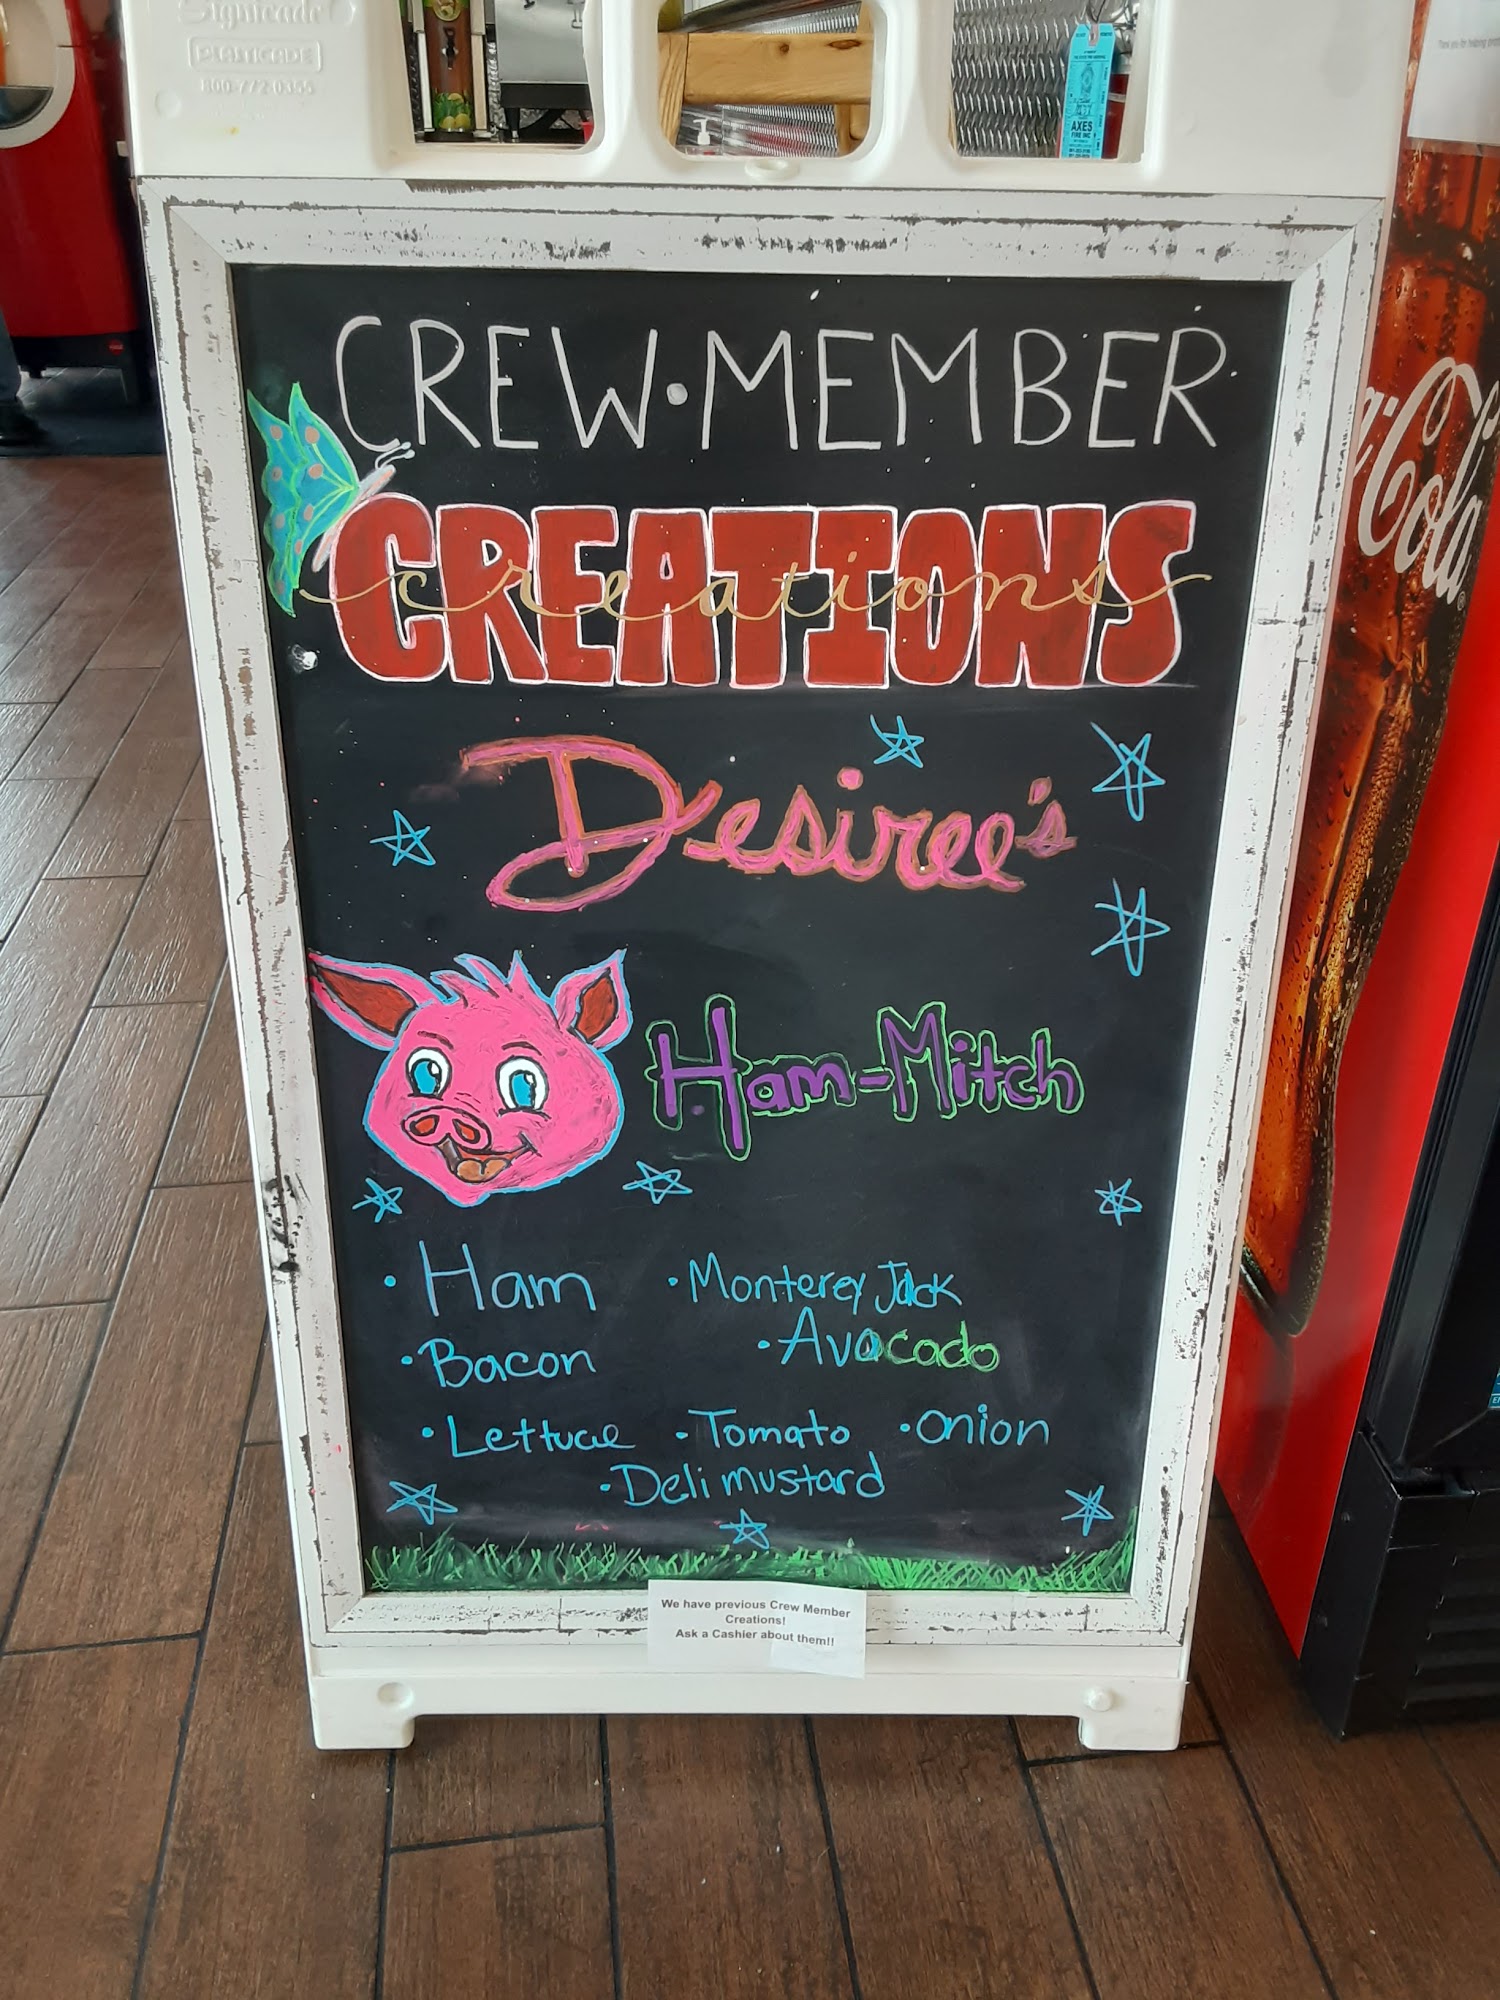 Signicade
PLASTICADE
800-772-0355
AXES
FIRE INC
CREW·MEMBER
CREATIONS
creations
Desiree's
Ham-Mitch
· Ham · Monterey Jack
· Bacon · Avocado
· Lettuce · Tomato · Onion
· Deli mustard
We have previous Crew Member
Creations!
Ask a Cashier about them!!
Cola